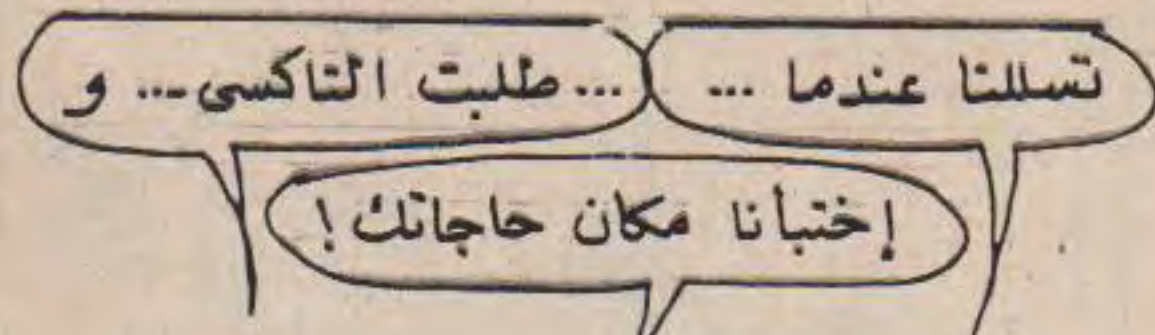 تسللنا عندما ...
... طلبت التاكسى ... و
إختبأنا مكان حاجاتك !